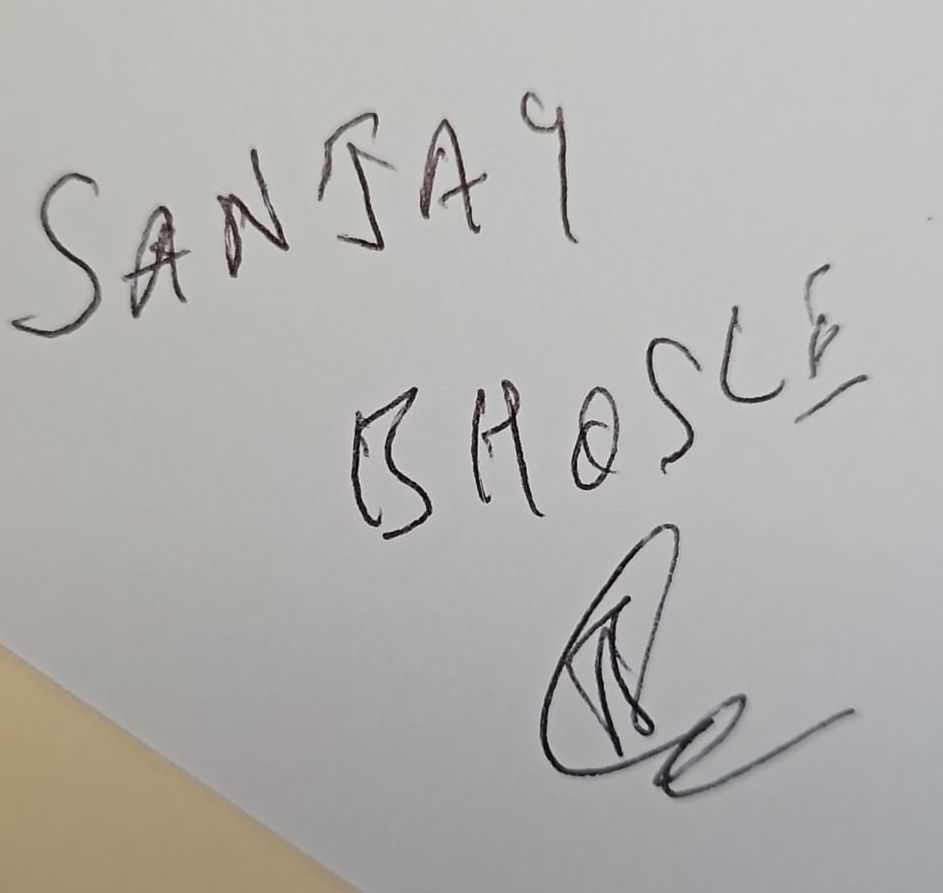 SANJAY
BHOSLE